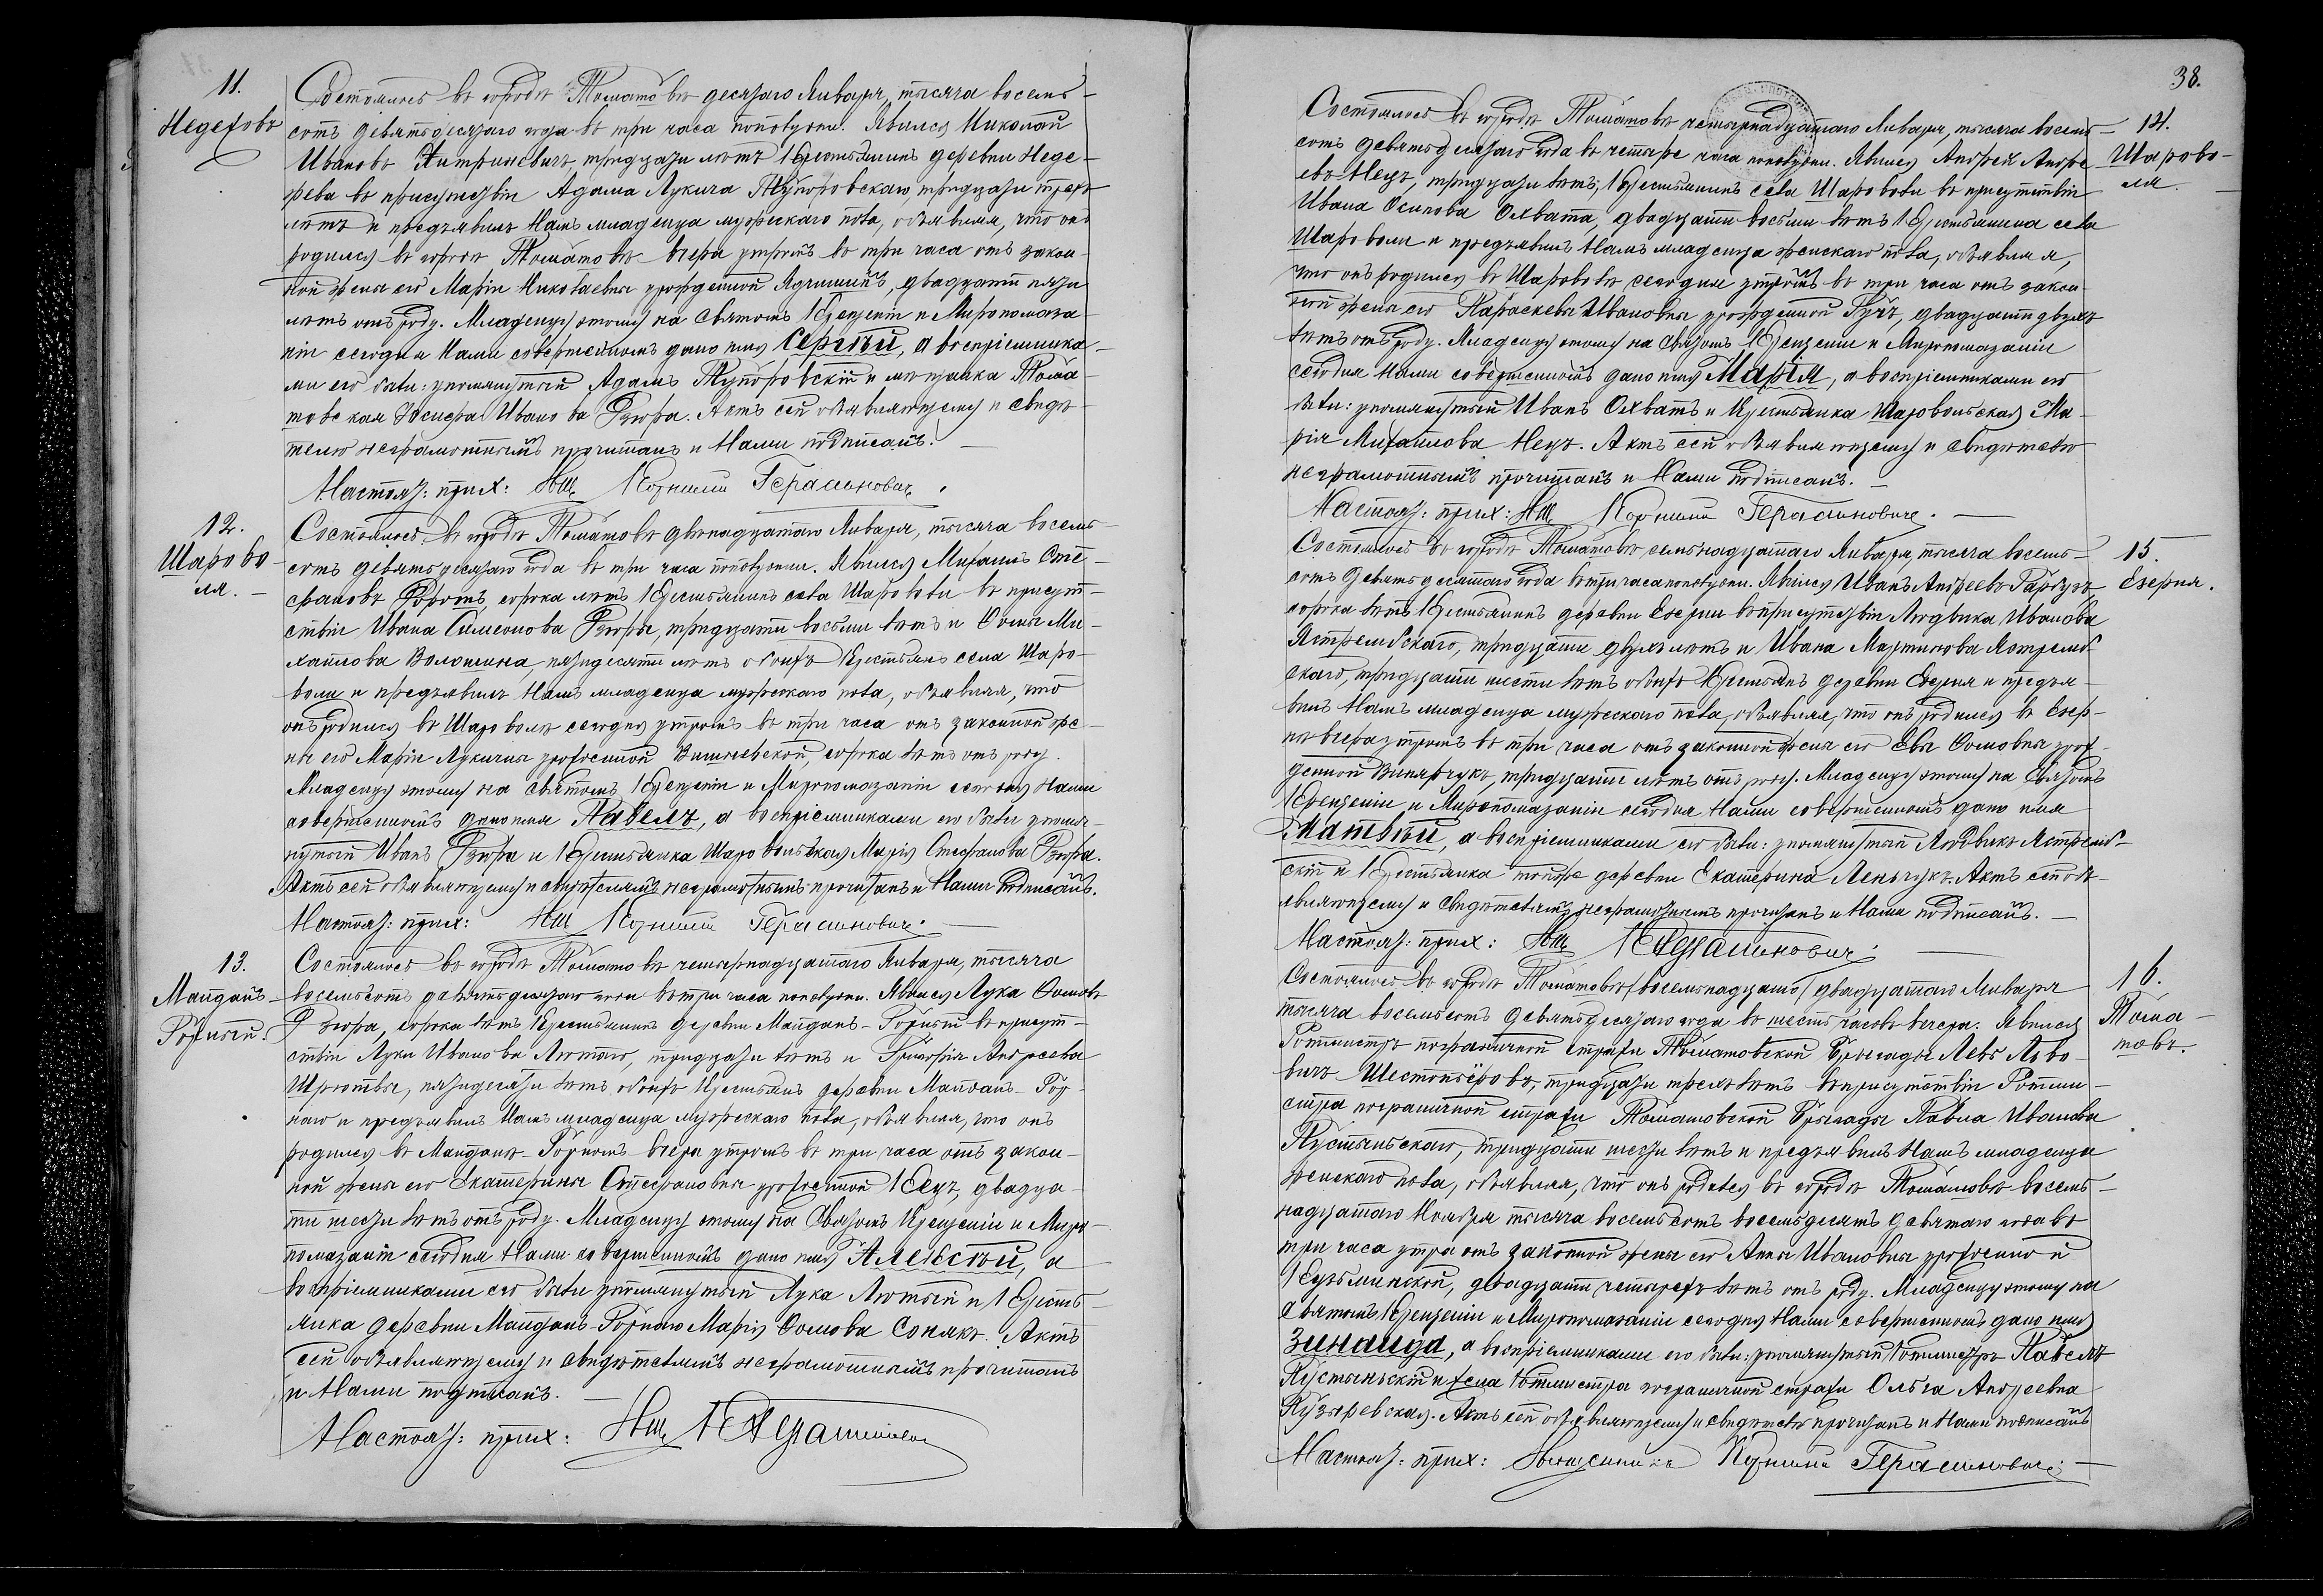 11.
Недеховъ
Состоялось въ городѣ Томашовѣ десятаго Января, тысяча восемь-
сотъ девятьдесятаго года въ три часа пополудни. Явился Николай
Ивановъ тридцати лѣтъ Крестьянинъ деревни Неде-
хова въ присутствіи Адама Лукича тридцати трехъ
лѣтъ и предъявилъ Намъ младенца мужескаго пола, объявляя, что онъ
родился въ городѣ Томашовѣ вчера утромъ въ три часа отъ закон-
ной жены его Маріи Николаевны урожденной двадцати пяти
лѣтъ отъ роду. Младенцу этому на Святомъ Крещеніи и Миропомаза-
ніи сегодня Нами совершенномъ дано имя Сергѣй, а воспріемника-
ми его были: упомянутый Адамъ и мѣщанка Тома-
шовская Іосифа Иванова Дзюра. Актъ сей объявляющему и свидѣ-
телю неграмотнымъ прочитанъ и Нами подписанъ.
Настоят: прих: Корнилій Герасиновичъ.
12.
Шарово-
ля.
Состоялось въ городѣ Томашовѣ двѣнадцатаго Января, тысяча восемь-
сотъ девятьдесятаго года въ три часа пополудни. Явился Михаилъ Сте-
фановъ сорока лѣтъ Крестьянинъ села Шароволи въ присут-
ствіи Ивана Симеонова Дзюры, тридцати восьми лѣтъ и Ѳомы Ми-
хайлова Волошина, пятидесяти лѣтъ обоихъ Крестьянъ села Шаро-
воли и предъявилъ Намъ младенца мужескаго пола, объявляя, что
онъ родился въ Шароволѣ сегодня утромъ въ три часа отъ законной же-
ны его Маріи Лукичны урожденной Вишневской, сорока лѣтъ отъ роду.
Младенцу этому на Святомъ Крещеніи и Миропомазаніи сегодня Нами
совершенномъ дано имя Павелъ, а воспріемниками его были упомя-
нутый Иванъ Дзюра и Крестьянка Шаровольская Марія Стефанова Дзюра.
Актъ сей объявляющему и свидѣтелямъ неграмотнымъ прочитанъ и Нами подписанъ.
Настоят: прих: Корнилій Герасиновичъ.
13.
Майданъ-
Горный.
Состоялось въ городѣ Томашовѣ четырнадцатаго Января, тысяча
восемьсотъ девятьдесятаго года въ три часа пополудни. Явился Лука Ѳомовъ
Дзюра, сорока лѣтъ Крестьянинъ деревни Майданъ-Горный въ присут-
ствіи Луки Иванова Лютаго, тридцати лѣтъ и Григорія Андреева
пятидесяти лѣтъ обоихъ Крестьянъ деревни Майданъ-Гор-
наго и предъявилъ Намъ младенца мужескаго пола, объявляя, что онъ
родился въ Майданѣ-Горномъ вчера утромъ въ три часа отъ закон-
ной жены его Екатерины Стефановны урожденной двадца-
ти шести лѣтъ отъ роду. Младенцу этому на Святомъ Крещеніи и Миро-
помазаніи сегодня Нами совершенномъ дано имя Алексѣй, а
воспріемниками его были упомянутый Лука Лютый и Кресть-
янка деревни Майданъ-Горнаго Марія Ѳомова Сопякъ. Актъ
сей объявляющему и свидѣтелямъ неграмотнымъ прочитанъ
и Нами подписанъ.
Настоят: прих: К Герасиновичъ
38.
14.
Шарово-
ля.
Состоялось въ городѣ Томашовѣ четырнадцатаго Января, тысяча восемь-
сотъ девятьдесятаго года въ четыре часа пополудни. Явился Андрей Андре-
евъ Нецъ, тридцати лѣтъ, Крестьянинъ села Шароволи въ присутствіи
Ивана Осипова Охвата, двадцати восьми лѣтъ Крестьянина села
Шароволи и предъявилъ Намъ младенца женскаго пола, объявляя,
что онъ родился въ Шароволѣ сегодня утромъ въ три часа отъ закон-
ной жены его Параскевы Ивановны урожденной двадцати двухъ
лѣтъ отъ роду. Младенцу этому на Святомъ Крещеніи и Миропомазаніи
сегодня Нами совершенномъ дано имя Марія, а воспріемниками его
были: упомянутый Иванъ Охватъ и Крестьянка Шаровольская Ма-
рія Михайлова Нецъ. Актъ сей объявляющему и свидѣтелю
неграмотнымъ прочитанъ и Нами подписанъ.
Настоят: прих: Корнилій Герасиновичъ.
15.
Езерня.
Состоялось въ городѣ Томашовѣ семьнадцатаго Января, тысяча восемь-
сотъ девятьдесятаго года въ три часа пополудни. Явился Иванъ Андреевъ Гарбузъ
сорока лѣтъ Крестьянинъ деревни Езерни въ присутствіи Людвика Иванова
Ястрембскаго, тридцати двухъ лѣтъ и Ивана Мартинова Ястремб-
скаго, тридцати шести лѣтъ обоихъ Крестьянъ деревни Езерня и предъя-
вилъ Намъ младенца мужескаго пола, объявляя, что онъ родился въ Езер-
нѣ вчера утромъ въ три часа отъ законной жены его Евы Ѳомовны урож-
денной Винярчукъ, тридцати лѣтъ отъ роду. Младенцу этому на Святомъ
Крещеніи и Миропомазаніи сегодня Нами совершенномъ дано имя
Матвѣй, а воспріемниками его были: упомянутый Людвикъ Ястремб-
скій и Крестьянка той же деревни Екатерина Леньчукъ. Актъ сей объ-
являющему и свидѣтелямъ неграмотнымъ прочитанъ и Нами подписанъ.
Настоят: прих: К Герасиновичъ
16.
Тома-
шовъ.
Состоялось въ городѣ Томашовѣ (восемьнадцато) двадцатаго Января
тысяча восемьсотъ девятьдесятаго года въ шесть часовъ вечера. Явился
Ротмистръ пограничной стражи Томашовской Бригады Левъ Льво-
вичъ Шестопёровъ, тридцати трехъ лѣтъ въ присутствіи Ротми-
стра пограничной стражи Томашовской Бригады Павла Иванова
Пустыньскаго, тридцати шести лѣтъ и предъявилъ Намъ младенца
женскаго пола, объявляя, что онъ родился въ городѣ Томашовѣ восемь-
надцатаго Ноября тысяча восемьсотъ восемьдесятъ девятаго года въ
три часа утра отъ законной жены его Анны Ивановны урожденной
Кузьминской, двадцати четырехъ лѣтъ отъ роду. Младенцу этому на
Святомъ Крещеніи и Миропомазаніи сегодня Нами совершенномъ дано имя
Зинаида, а воспріемниками его были: упомянутый Ротмистръ Павелъ
Пустыньскій и жена Ротмистра пограничной стражи Ольга Андреевна
Актъ сей объявляющему и свидѣтелю прочитанъ и Нами подписанъ
Настоят: прих: Священникъ Корнилій Герасиновичъ